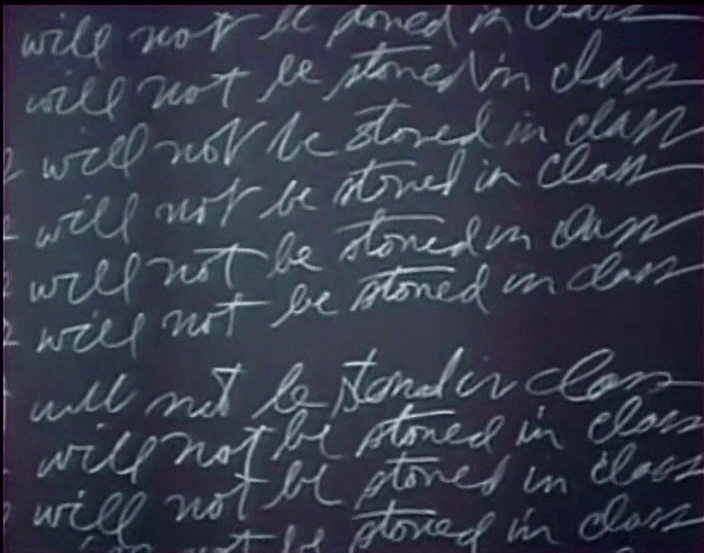 will not be stoned in class
will not be stoned in class
will not be stoned in class
will not be stoned in class
will not be stoned in class
will not be stoned in class
will not be stoned in class
will not be stoned in class
will not be stoned in class
not be stoned in class